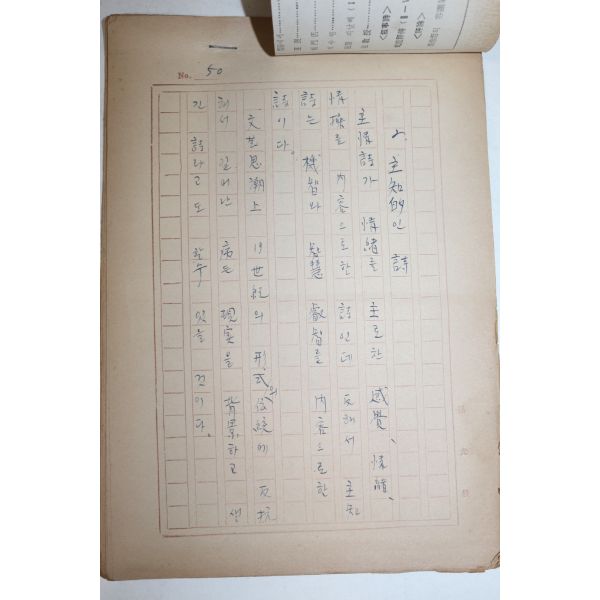 No. 50
主知的인 詩
主情詩가 情緖를 主로한 感覺、情緖、
情操를 內容으로한 詩인데 反해서 主知
詩는 機智와 智慧 叡智를 內容으로한
詩이다。
文芸思潮上 19世紀의 形式의 伝統에 反抗
해서 일어난 病든 現実을 背景하고 생
긴 詩라고도 할수 있을 것이다。